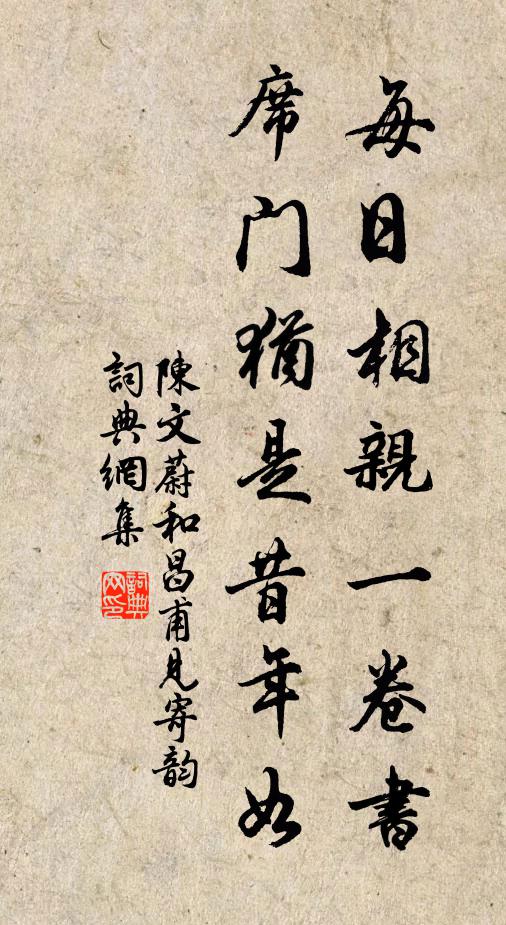 每日相親一卷書
席門猶是昔年如
陳文蔚和昌甫見寄韵
詞典網集
詞典網印